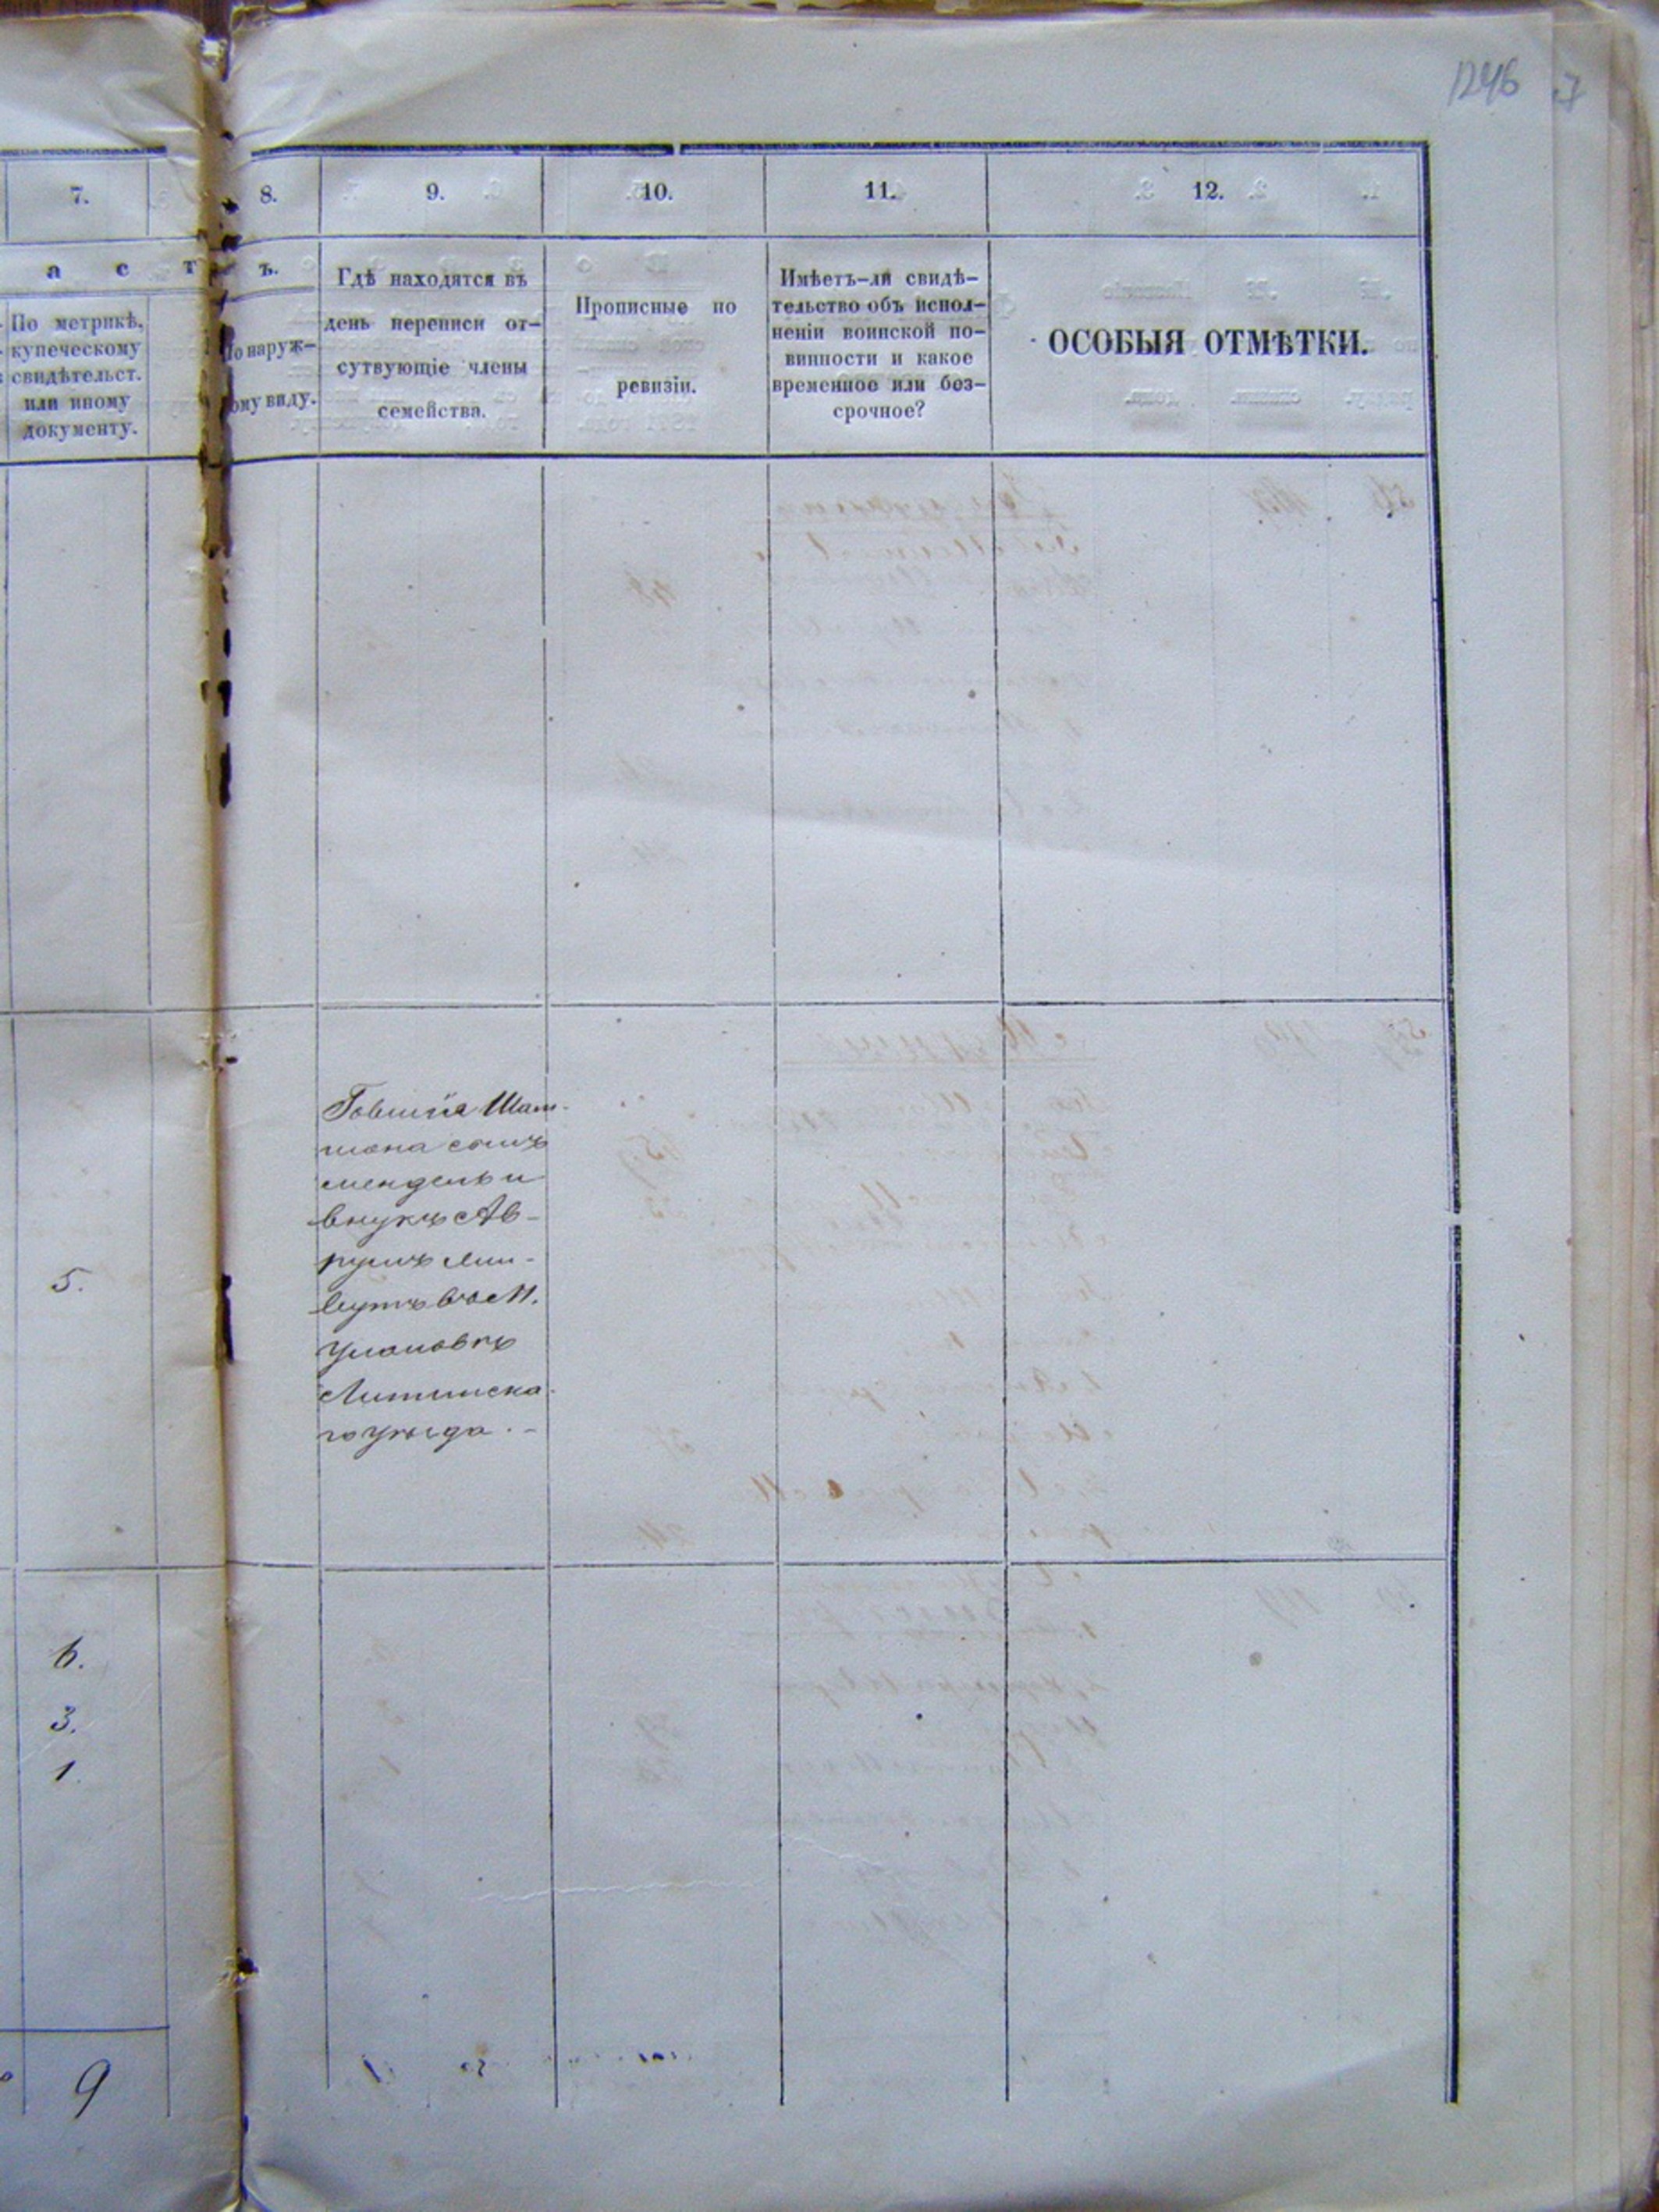 1246
7
7.
8.
9.
10.
11.
12.
а с т ъ.
По метрикѣ,
купеческому
свидѣтельст.
или иному
документу.
По наруж-
ному виду.
Гдѣ находятся въ
день переписи от-
сутвующіе члены
семейства.
Прописные по
ревизіи.
Имѣетъ-ли свидѣ-
тельство объ испол-
неніи воинской по-
винности и какое
временное или без-
срочное?
ОСОБЫЯ ОТМѢТКИ.
Шам-
шона сынъ
Мендель и
внукъ Ав-
румъ жи-
вутъ въ М.
Улановкѣ
Литинска-
го уѣзда.
5.
6.
3.
1.
9